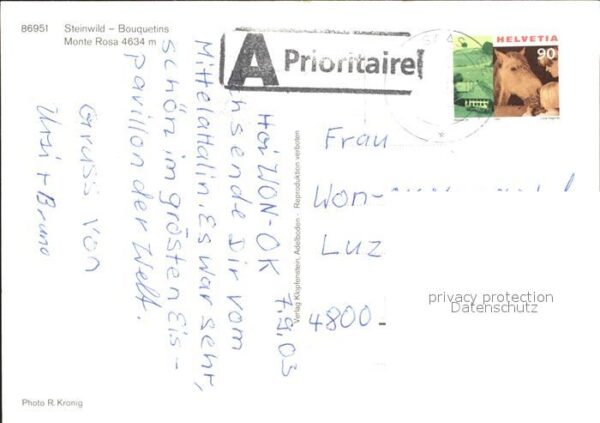 86951 Steinwild – Bouquetins
Monte Rosa 4634 m
A Prioritaire
HELVETIA
90
7.9.03
Hoi WON-OK
sende Dir vom
Mittelallalin. Es war sehr,
schön im grösten Eis-
pavillon der Welt.
Gruss von
Ursi + Bruno
Verlag Klopfenstein, Adelboden - Reproduktion verboten
Frau
Won-
Luz
4800
privacy protection
Datenschutz
Photo R. Kronig